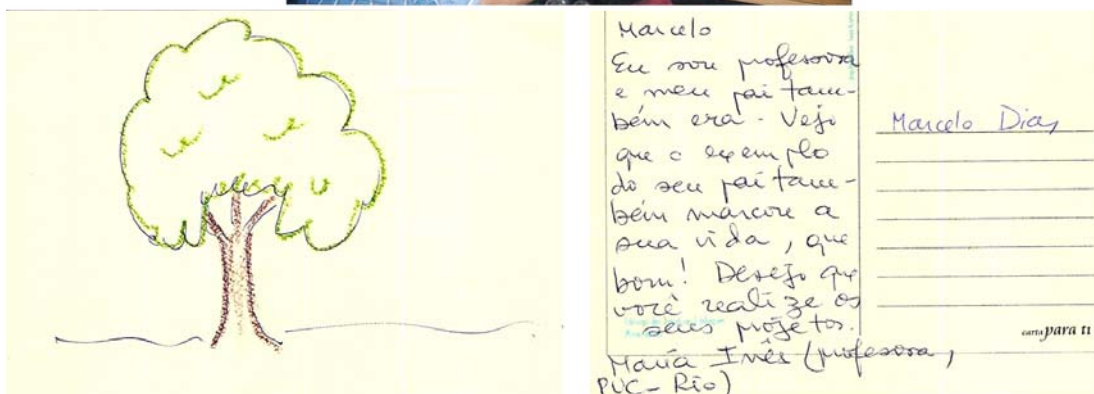 Marcelo
Eu sou professora
e meu pai tam-
bém era. Vejo
que o exemplo
do seu pai tam-
bém marcou a
sua vida, que
bom! Desejo que
você realize os
seus projetos.
Maria Inês (professora,
PUC-Rio)
Marcelo Dias
carta para ti